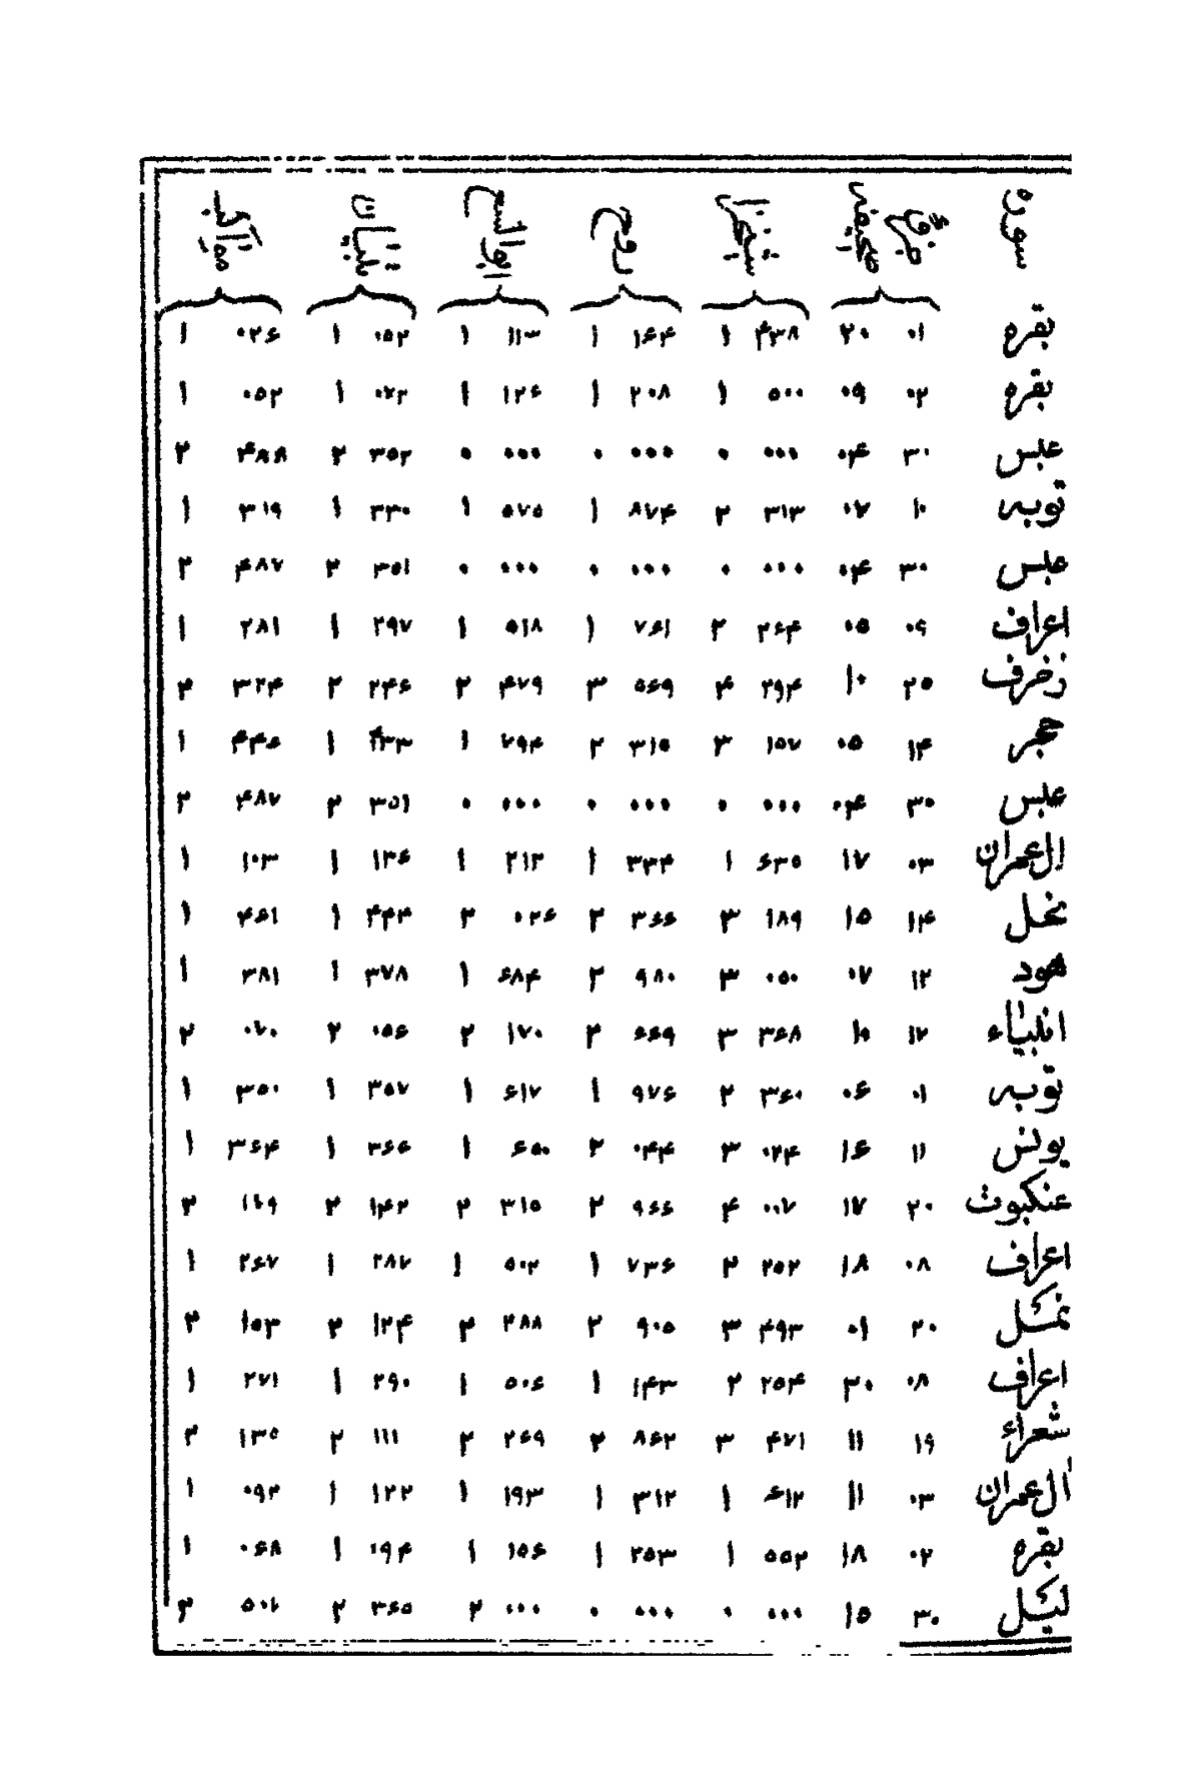 سورة جزؤ صحيفه شيخزاده روح ابو السعود تبيان مواكب
بقره ۰۱ ۲۰ ۴۳۸ ۱ ۱۶۴ ۱ ۱۱۳ ۱ ۰۵۲ ۱ ۰۲۶ ۱
بقره ۰۲ ۰۹ ۵۰۰ ۱ ۲۰۸ ۱ ۱۲۶ ۱ ۰۷۲ ۱ ۰۵۲ ۱
عبس ۳۰ ۰۴ ۰۰۰ ۰ ۰۰۰ ۰ ۰۰۰ ۰ ۳۵۲ ۲ ۴۸۸ ۲
توبه ۱۰ ۰۷ ۳۱۳ ۲ ۸۷۴ ۱ ۵۷۵ ۱ ۳۳۰ ۱ ۳۱۹ ۱
عبس ۳۰ ۰۴ ۰۰۰ ۰ ۰۰۰ ۰ ۰۰۰ ۰ ۳۵۱ ۲ ۴۸۷ ۲
اعراف ۰۹ ۰۵ ۲۶۴ ۲ ۷۶۱ ۱ ۵۱۸ ۱ ۲۹۷ ۱ ۲۸۱ ۱
زخرف ۲۵ ۱۰ ۲۹۴ ۴ ۵۶۹ ۳ ۴۷۹ ۲ ۲۴۶ ۲ ۳۲۴ ۲
حجر ۱۴ ۰۵ ۱۵۷ ۳ ۳۱۵ ۲ ۷۹۴ ۱ ۴۳۳ ۱ ۴۴۶ ۱
عبس ۳۰ ۰۴ ۰۰۰ ۰ ۰۰۰ ۰ ۰۰۰ ۰ ۳۵۱ ۲ ۴۸۷ ۲
ال عمران ۰۳ ۱۷ ۶۳۵ ۱ ۳۳۴ ۱ ۲۱۲ ۱ ۱۳۶ ۱ ۱۰۳ ۱
نحل ۱۴ ۱۵ ۱۸۹ ۳ ۳۶۶ ۲ ۰۲۶ ۲ ۴۴۴ ۱ ۴۶۱ ۱
هود ۱۲ ۰۷ ۰۵۰ ۳ ۹۸۰ ۲ ۶۸۴ ۱ ۳۷۸ ۱ ۳۸۱ ۱
انبياء ۱۷ ۱۰ ۳۶۸ ۳ ۶۶۹ ۲ ۱۷۰ ۲ ۰۵۶ ۲ ۰۷۰ ۲
توبه ۰۱ ۰۶ ۳۶۰ ۲ ۹۷۶ ۱ ۶۱۷ ۱ ۳۵۷ ۱ ۳۵۰ ۱
يونس ۱۱ ۱۶ ۰۲۴ ۳ ۰۴۴ ۲ ۶۵۰ ۱ ۳۶۶ ۱ ۳۶۴ ۱
عنكبوت ۲۰ ۱۷ ۰۰۷ ۴ ۹۶۶ ۲ ۳۱۵ ۲ ۱۴۲ ۲ ۱۶۹ ۲
اعراف ۰۸ ۱۸ ۲۵۲ ۲ ۷۳۶ ۱ ۵۰۲ ۱ ۲۸۷ ۱ ۲۶۷ ۱
نمل ۲۰ ۰۱ ۴۹۳ ۳ ۹۰۵ ۲ ۲۸۸ ۲ ۱۲۴ ۲ ۱۵۳ ۲
اعراف ۰۸ ۲۰ ۲۵۴ ۲ ۱۴۳ ۱ ۵۰۶ ۱ ۲۹۰ ۱ ۲۷۱ ۱
شعراء ۱۹ ۱۱ ۴۷۱ ۳ ۸۶۲ ۲ ۲۶۹ ۲ ۱۱۱ ۲ ۱۳۵ ۲
ال عمران ۰۳ ۱۱ ۶۱۲ ۱ ۳۱۲ ۱ ۱۹۳ ۱ ۱۲۲ ۱ ۰۹۲ ۱
بقره ۰۲ ۱۸ ۵۵۲ ۱ ۲۵۳ ۱ ۱۵۶ ۱ ۰۹۴ ۱ ۰۶۸ ۱
ليل ۳۰ ۱۵ ۰۰۰ ۰ ۰۰۰ ۰ ۰۰۰ ۲ ۳۶۵ ۲ ۵۰۷ ۲